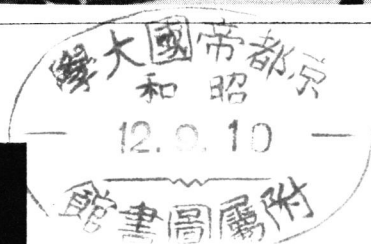 京都帝國大學
昭和
12.9.10
附屬圖書館